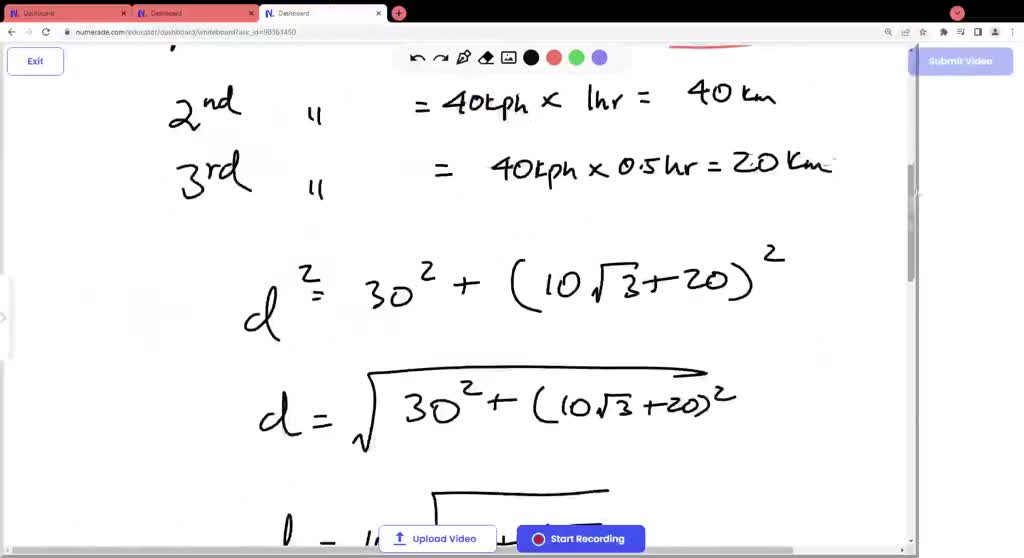 Dashboard Dashboard Dashboard
numerade.com/educator/dashboard/whiteboard?ask_id=98361450
Exit
Submit Video
2nd " = 40kph × 1hr = 40 km
3rd " = 40kph × 0.5 hr = 20 Km
d² = 30² + (10√3 + 20)²
d = √30² + (10√3 + 20)²
Upload Video
Start Recording